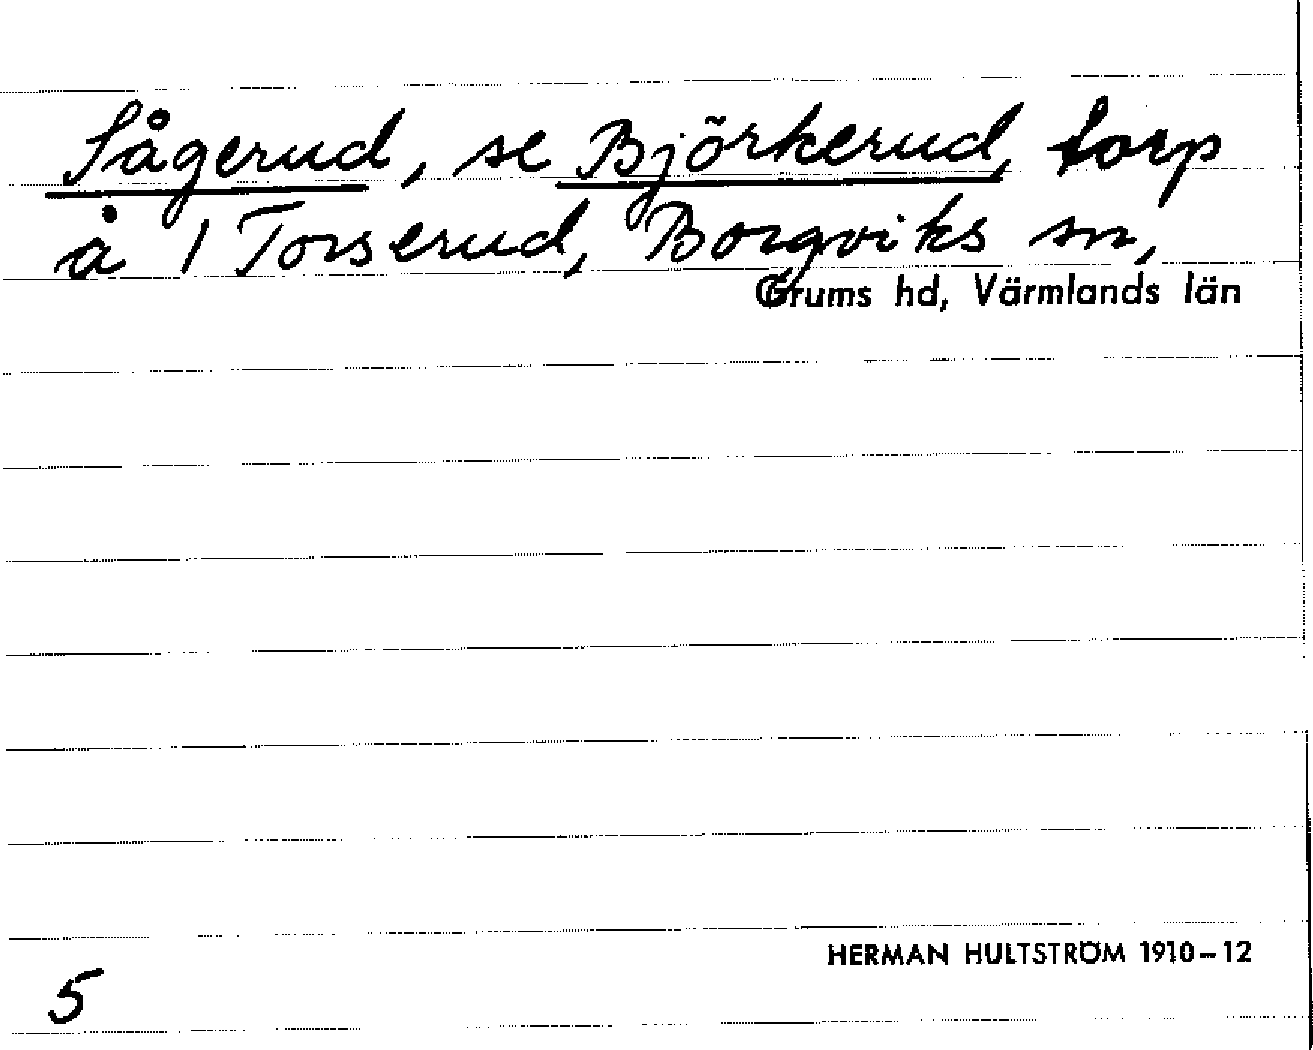 Sågerud, se Björkerud, torp
å 1 Torserud, Borgviks sn,
Grums hd, Värmlands län
HERMAN HULTSTRÖM 1910–12
5